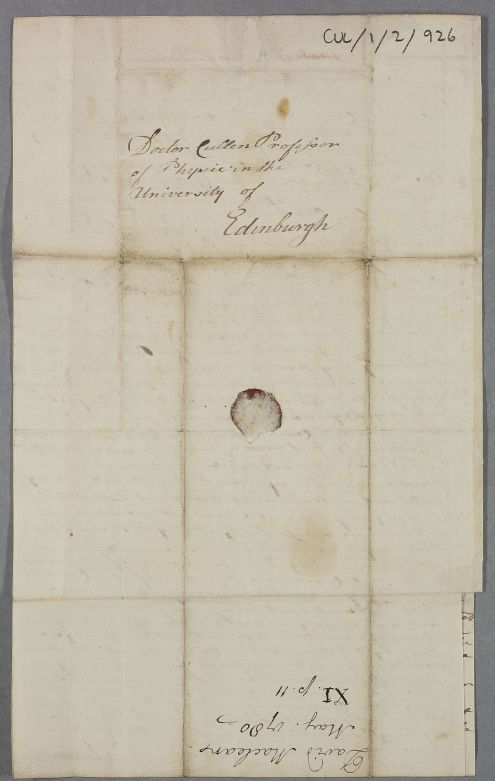 CUL/1/2/926
Doctor Cullen Professor
of Physic in the
University of
Edinburgh
David Macleans
May. 1780
XI. p. 11